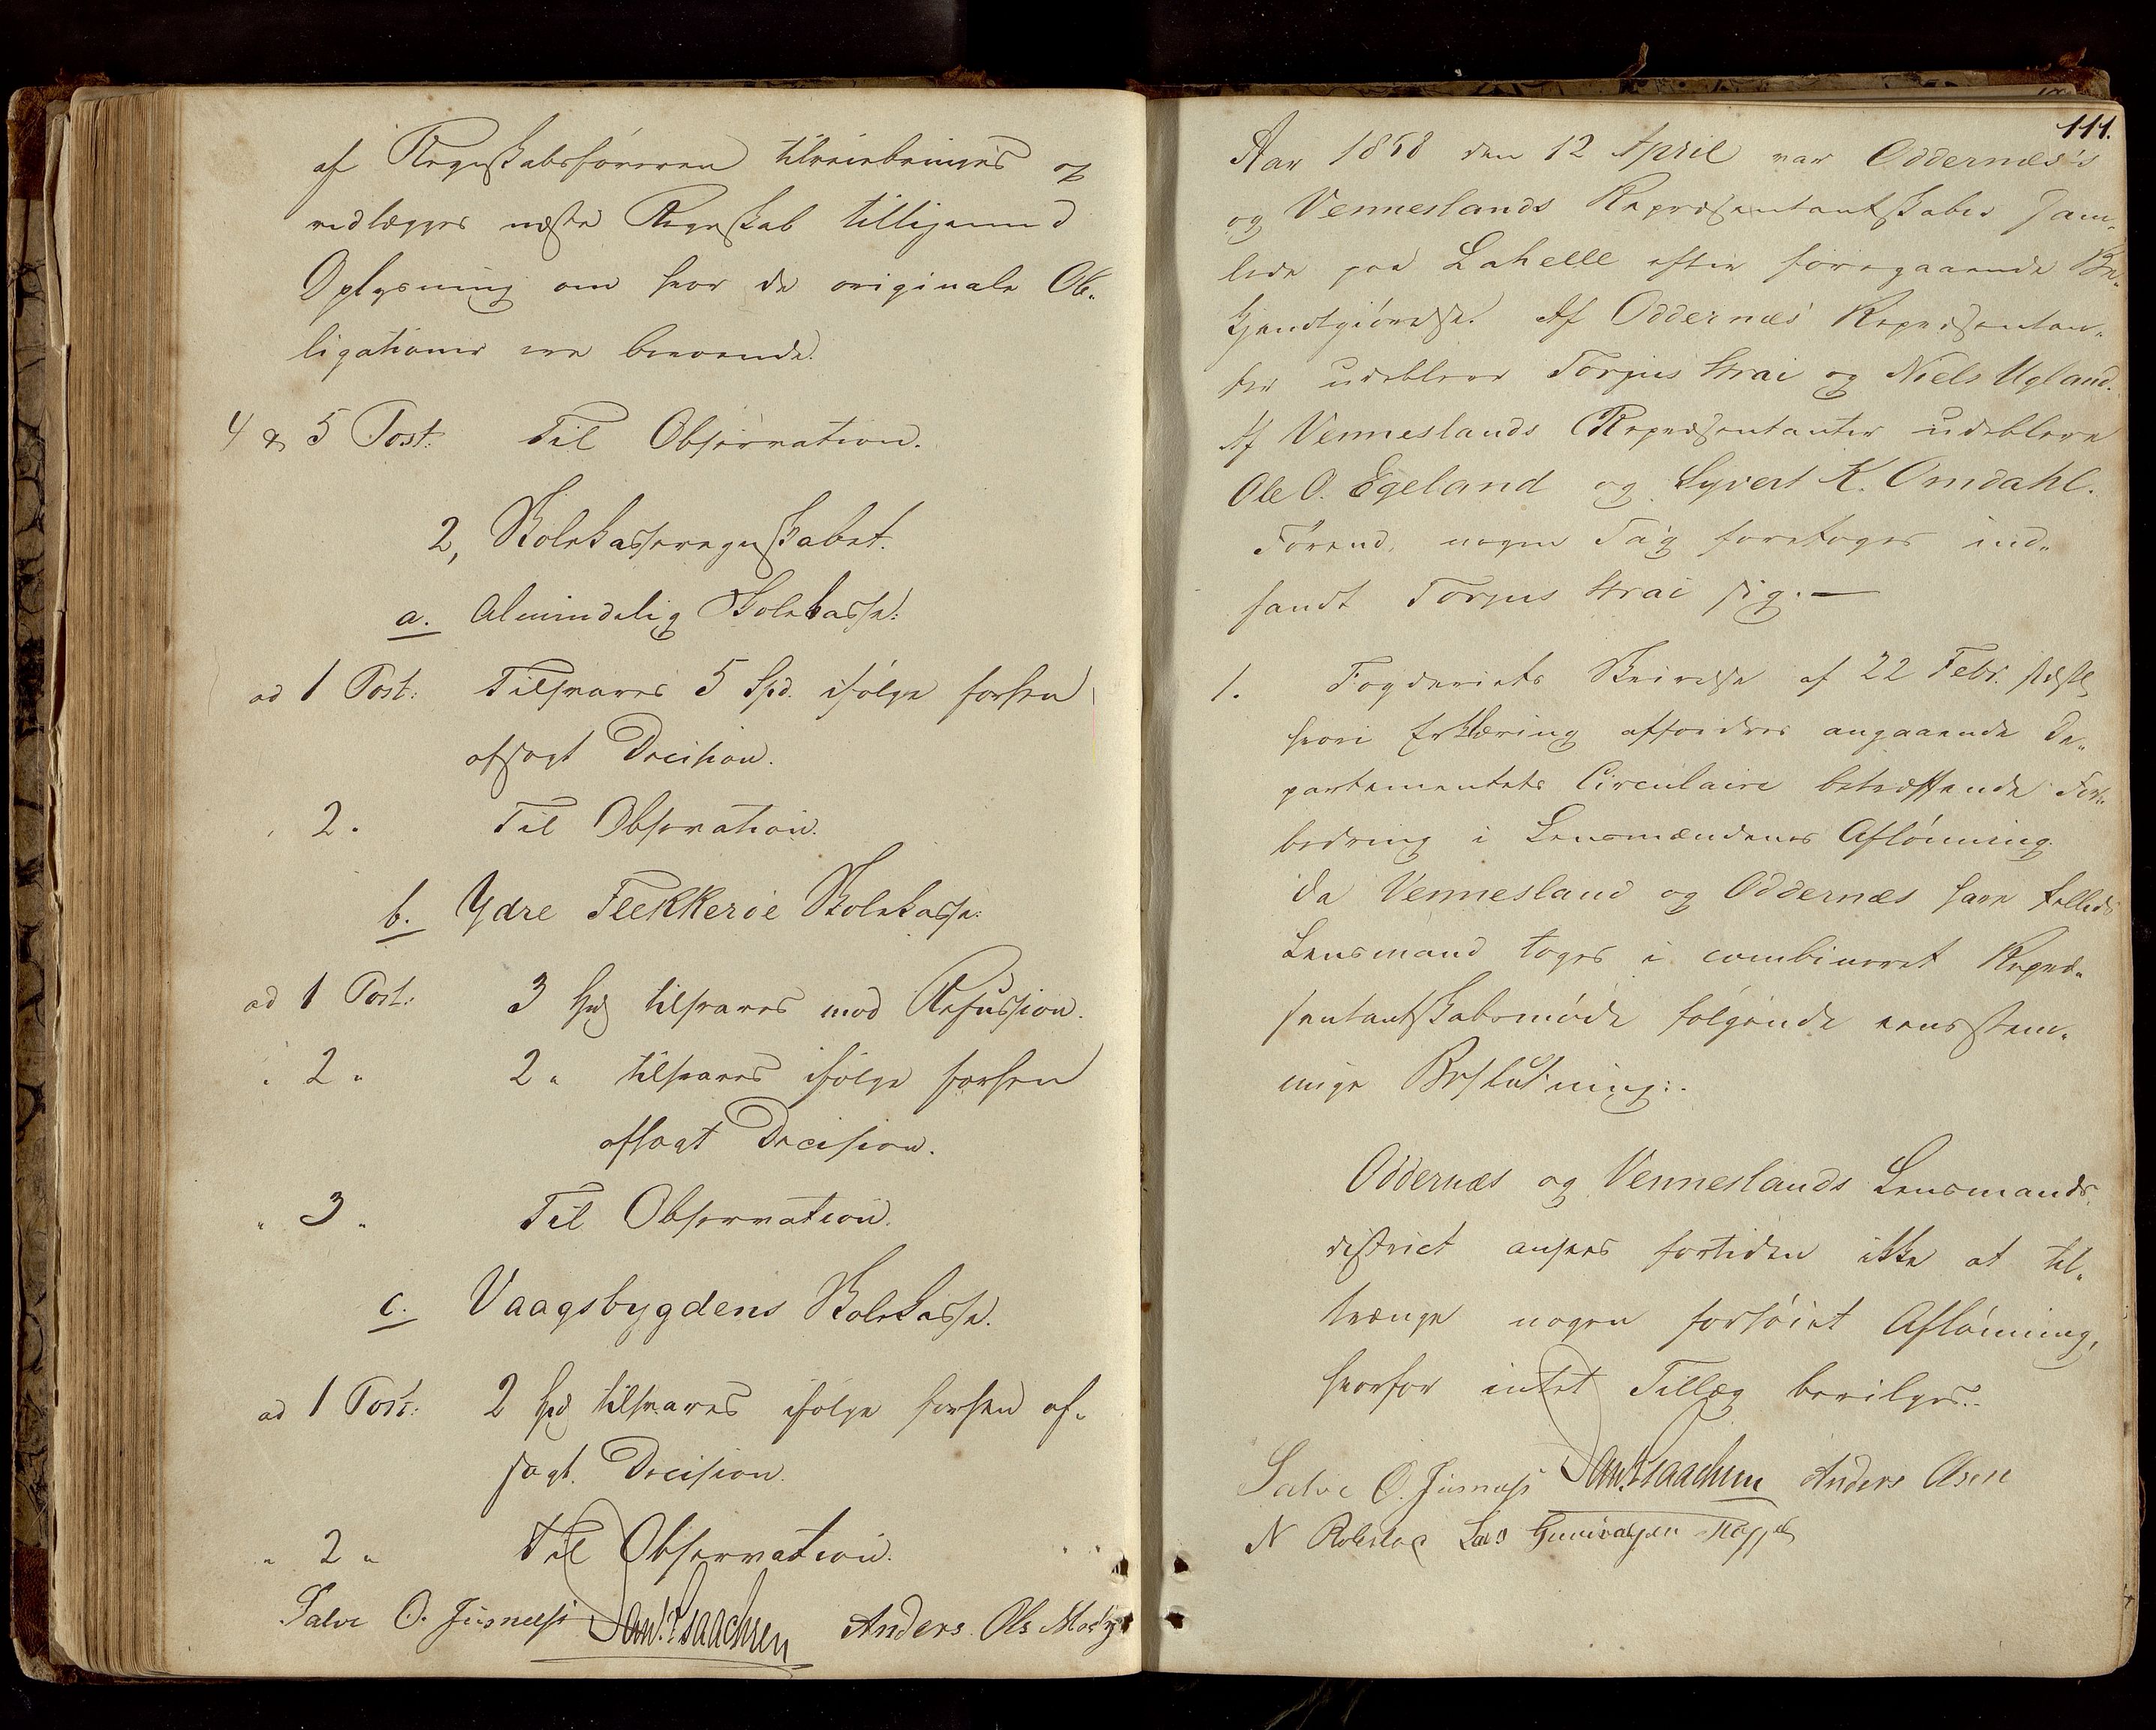 af Regnskabsføreren tilveiebringes og
vedlægges næste Regnskab tilligemed
Oplysning om hvor de originale Ob-
ligationer ere beroende.
4 & 5 Post: Til Observation.
2, Skolekasseregnskabet.
a. Almindelig Skolekasse:
ad 1 Post: Tilsvares 5 Spd. ifølge forhen
afsagt Decision.
" 2. Til Observation.
b. Ydre Flekkerøe Skolekasse:
ad 1 Post: 3 Spd tilsvares mod Refussion.
" 2 " 2 " tilsvares ifølge forhen
afsagt Decision.
" 3 " Til Observation.
c. Vaagsbygdens Skolekasse.
ad 1 Post: 2 Spd tilsvares ifølge forhen af-
sagt Decision.
" 2 " Til Observation.
Salve O. Isaachsen Anders Ols
111.
Aar 1858 den 12 April var Oddernæs's
og Venneslands Repræsentantskaber sam-
lede paa Lahelle efter foregaaende Be-
kjendtgiørelse. Af Oddernæs Repræsentan-
ter udebleve Torjus Strai og Niels Ugland.
Af Venneslands Repræsentanter udebleve
Ole O. Egeland og Syvert K. Omdahl.
Førend nogen Sag foretoges ind-
fandt Torjus Strai sig. —
1. Fogderiets Skrivelse af 22 Febr. sidstl,
hvori Erklæring affordres angaaende De-
partementets Circulaire betræffende For-
bedring i Lensmændenes Aflønning.
Da Vennesland og Oddernæs have fælleds
Lensmand toges i combineret Repræ-
sentantskabsmøde følgende eensstem-
mige Beslutning:.
Oddernæs og Venneslands Lensmands-
district ansees fortiden ikke at til-
trænge nogen forhøiet Aflønning,
hvorfor intet Tillæg bevilges..
Salve O. Isaachsen Anders Osen
N